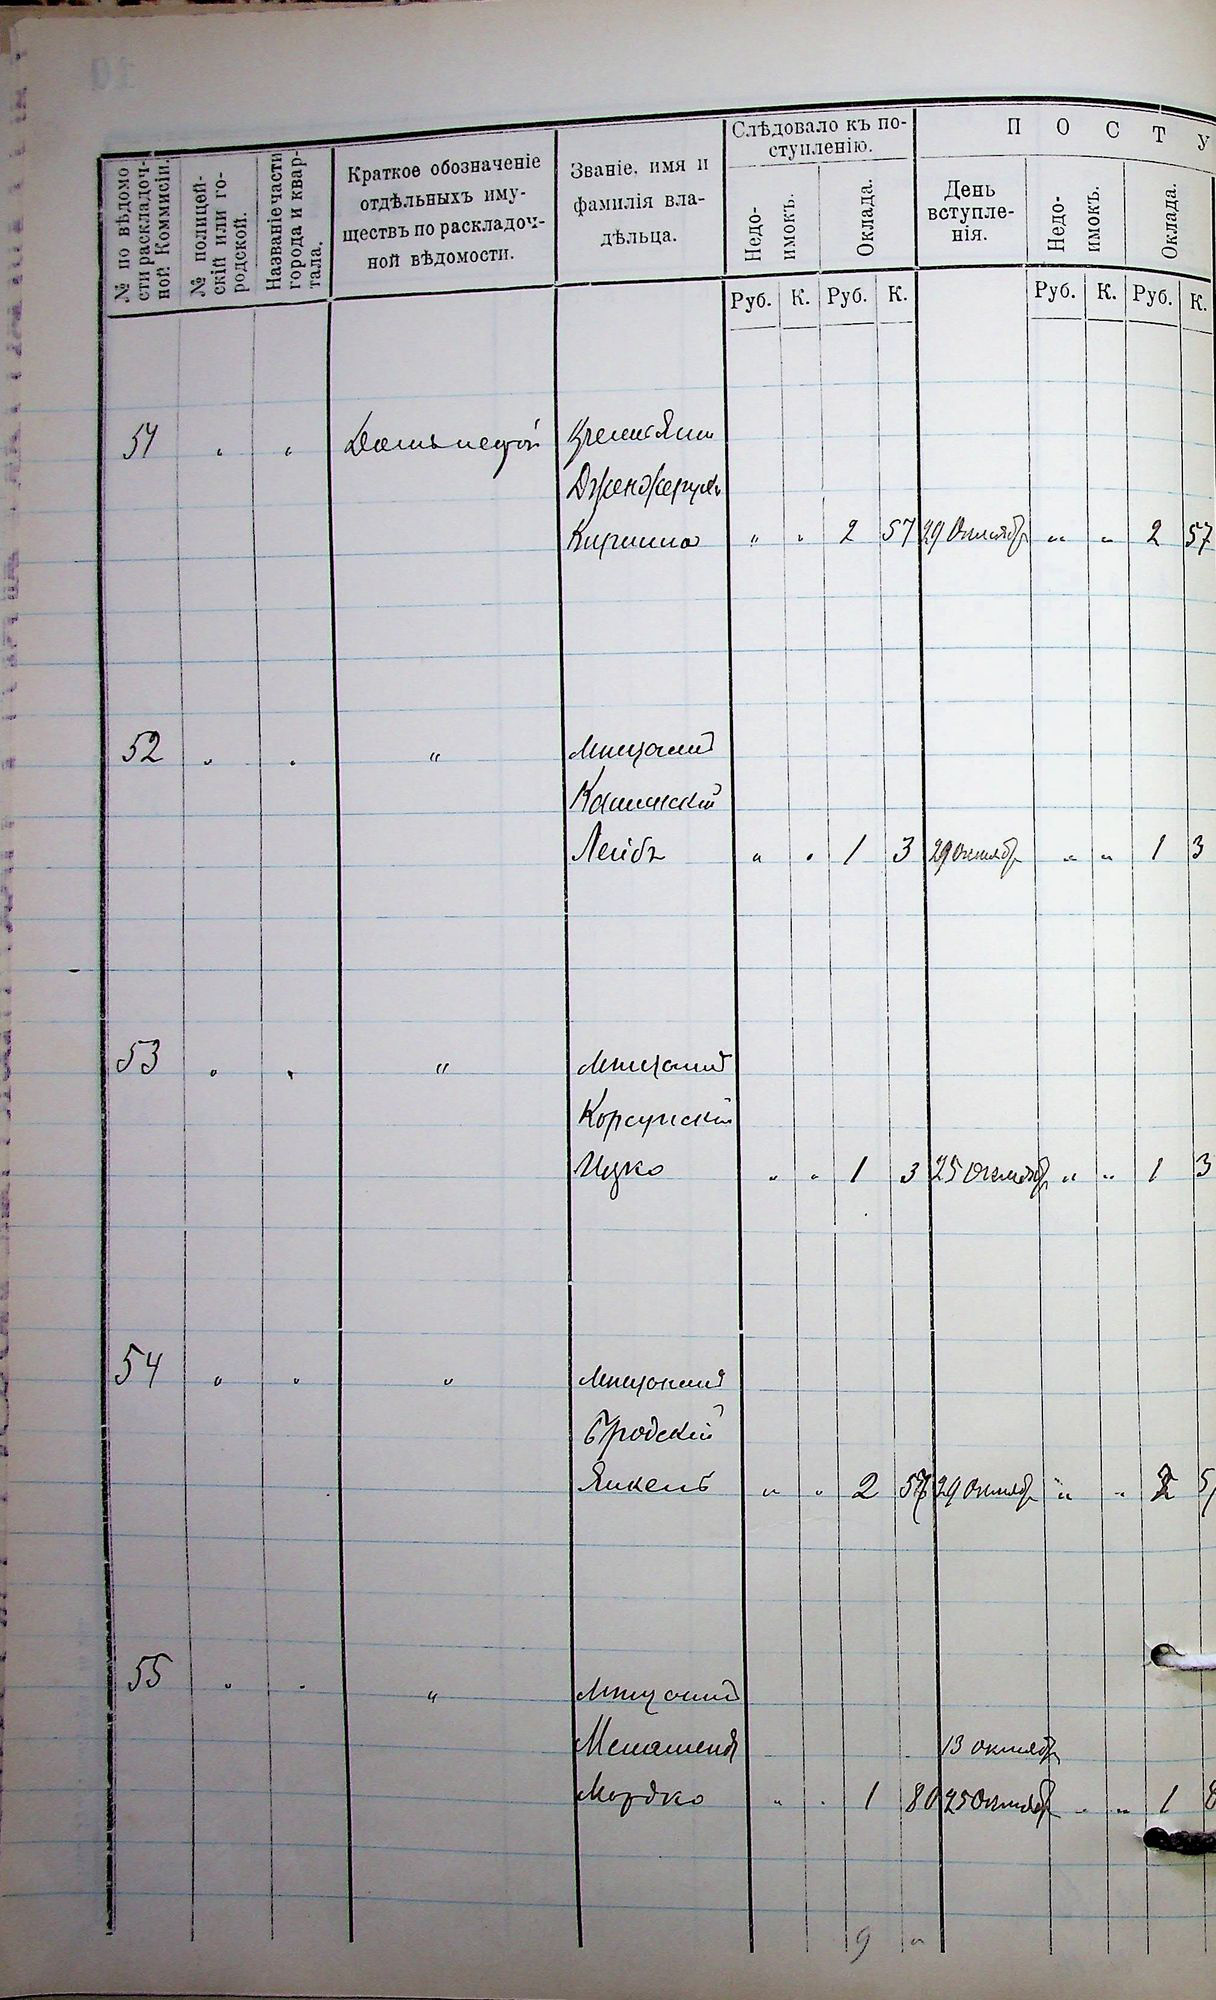 № по вѣдомо
сти раскладоч-
ной Коммисіи.
№ полицей-
скій или го-
родской.
Названіе части
города и квар-
тала.
Краткое обозначеніе
отдѣльныхъ иму-
ществъ по раскладоч-
ной вѣдомости.
Званіе, имя и
фамилія вла-
дѣльца.
Слѣдовало къ по-
ступленію.
Недо-
имокъ.
Оклада.
П О С Т У
День
вступле-
нія.
Недо-
имокъ.
Оклада.
Руб. К. Руб. К. Руб. К. Руб. К.
51 " "
Кирилло " " 2 57 29 Октябр " " 2 57
52 " " " Мещанин
Лейбъ " " 1 3 29 Октябр " " 1 3
53 " " " Мещанин
Корсунскій
Ицко " " 1 3 25 Октябр " " 1 3
54 " " " Мещанин
Бродскій
Янкель " " 2 57 29 Октябр " " 2 5
55 " " " Мещанин
13 октябр
Мордко " " 1 80 25 Октябр " " 1 8
9 "